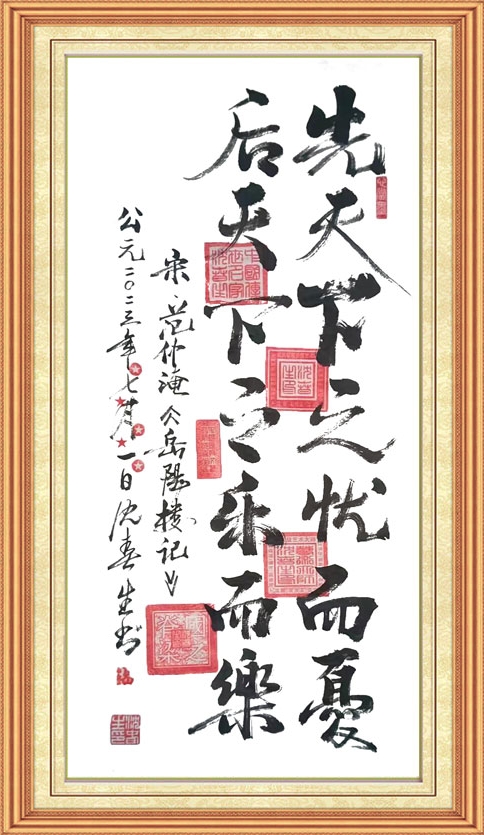 先天下之忧而憂
后天下之乐而樂
宋·范仲淹《岳陽楼记》
公元二〇二三年七月一日沈春生书